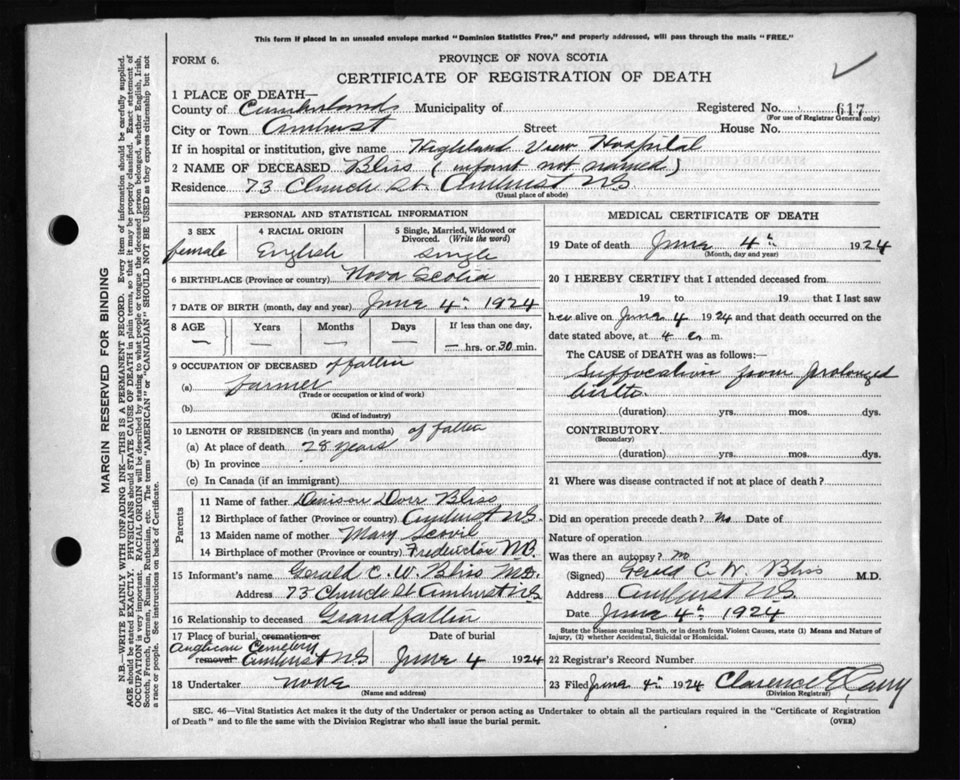 This form if placed in an unsealed envelope marked "Dominion Statistics Free," and properly addressed, will pass through the mails "FREE."
FORM 6.
PROVINCE OF NOVA SCOTIA
CERTIFICATE OF REGISTRATION OF DEATH
1 PLACE OF DEATH—
County of Cumberland Municipality of Registered No. 617
(For use of Registrar General only)
City or Town Amherst Street House No.
If in hospital or institution, give name Highland View Hospital
2 NAME OF DECEASED Bliss (infant not named)
Residence 73 Church St. Amherst N.S.
(Usual place of abode)
PERSONAL AND STATISTICAL INFORMATION
3 SEX 4 RACIAL ORIGIN 5 Single, Married, Widowed or
Divorced. (Write the word)
female English Single
6 BIRTHPLACE (Province or country) Nova Scotia
7 DATE OF BIRTH (month, day and year) June 4th 1924
8 AGE Years Months Days If less than one day,
— — — — — hrs. or 30 min.
9 OCCUPATION OF DECEASED of father
(a) farmer
(Trade or occupation or kind of work)
(b)
(Kind of industry)
10 LENGTH OF RESIDENCE (in years and months) of father
(a) At place of death 28 years
(b) In province
(c) In Canada (if an immigrant)
Parents
11 Name of father Denison Dorr Bliss
12 Birthplace of father (Province or country) Amherst N.S.
13 Maiden name of mother Mary Scovil
14 Birthplace of mother (Province or country) Fredericton N.B.
15 Informant's name Gerald C. W. Bliss M.D.
Address 73 Church St Amherst N.S
16 Relationship to deceased Grandfather
17 Place of burial, cremation or Date of burial
Anglican Cemetery
removal Amherst N.S June 4 1924
18 Undertaker none
(Name and address)
MEDICAL CERTIFICATE OF DEATH
19 Date of death June 4th 1924
(Month, day and year)
20 I HEREBY CERTIFY that I attended deceased from
19 to 19 that I last saw
her alive on June 4 1924 and that death occurred on the
date stated above, at 4 a m.
The CAUSE of DEATH was as follows:
Suffocation from prolonged
birth.
(duration) yrs. mos. dys.
CONTRIBUTORY
(Secondary)
(duration) yrs. mos. dys.
21 Where was disease contracted if not at place of death?
Did an operation precede death? No Date of
Nature of operation
Was there an autopsy? no
(Signed) Gerald C. W. Bliss M.D.
Address Amherst N.S.
Date June 4th 1924
State the Disease causing Death, or in death from Violent Causes, state (1) Means and Nature of
Injury, (2) whether Accidental, Suicidal or Homicidal.
22 Registrar's Record Number
23 Filed June 4th 1924 Clarence
(Division Registrar)
SEC. 46—Vital Statistics Act makes it the duty of the Undertaker or person acting as Undertaker to obtain all the particulars required in the "Certificate of Registration
of Death" and to file the same with the Division Registrar who shall issue the burial permit. (OVER)
MARGIN RESERVED FOR BINDING
N.B.—WRITE PLAINLY WITH UNFADING INK—THIS IS A PERMANENT RECORD. Every item of information should be carefully supplied.
AGE should be stated EXACTLY. PHYSICIANS should STATE CAUSE OF DEATH in plain terms, so that it may be properly classified. Exact statement of
OCCUPATION is very important. RACIAL ORIGIN will be described by stating to what people or tongue the deceased person belonged, whether English, Irish,
Scotch, French, German, Russian, Ruthenian, etc. The terms "AMERICAN" or "CANADIAN" SHOULD NOT BE USED as they express citizenship but not
a race or people. See instructions on back of Certificate.